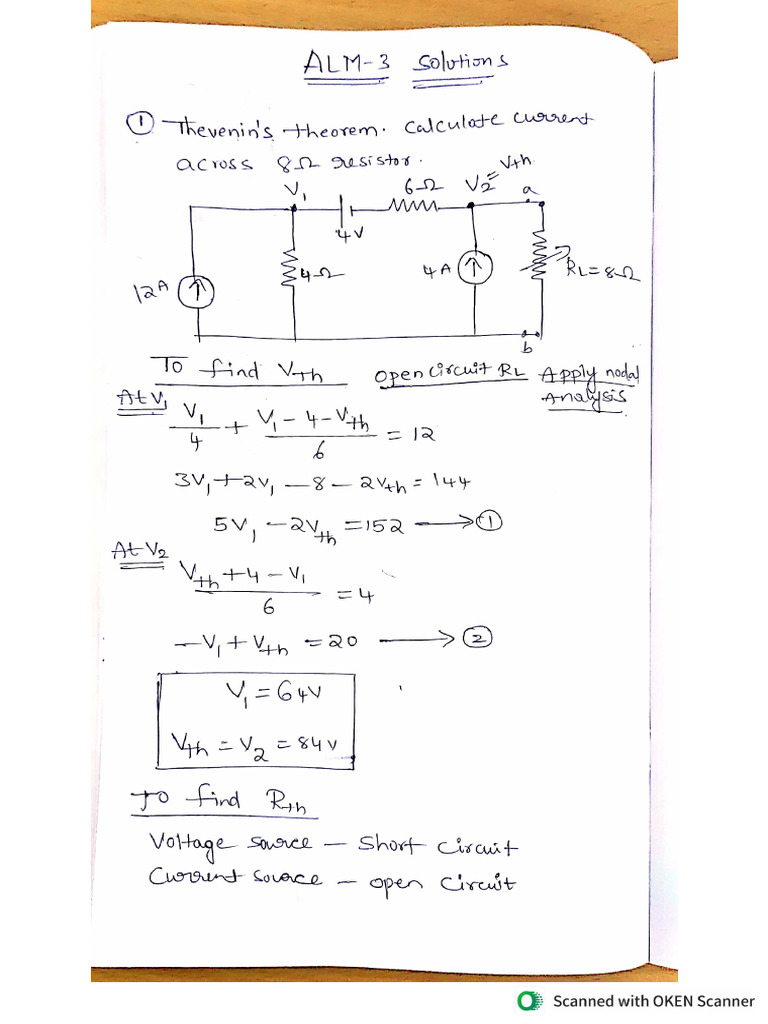 ALM-3 Solutions
① Thevenin's theorem. Calculate current
across 8Ω resistor.
V₁ 6Ω V₂ = Vth a
4V
12A 4Ω 4A RL=8Ω
b
To find Vth open circuit RL Apply nodal
Analysis
At V₁
V₁/4 + (V₁ - 4 - Vth)/6 = 12
3V₁ + 2V₁ - 8 - 2Vth = 144
5V₁ - 2Vth = 152 → ①
At V₂
(Vth + 4 - V₁)/6 = 4
-V₁ + Vth = 20 → ②
V₁ = 64V
Vth = V₂ = 84V
To find Rth
Voltage source - Short circuit
Current source - open circuit
Scanned with OKEN Scanner